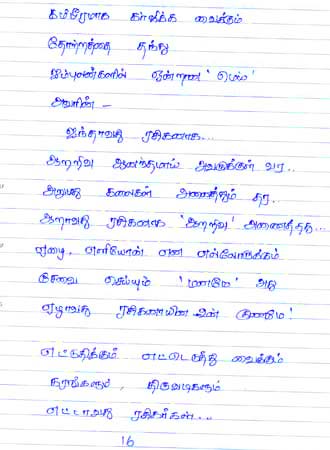 கம்பீரமாக கர்விக்க வைக்கும்
தோற்றத்தை தந்து
ஐம்புலன்களில் ஒன்றான 'மெய்'
அவரின் -
ஐந்தாவது ரசிகனாக...
ஆறறிவு ஆனந்தமாய் அவருக்குள் வர..
அறுபது கலைகள் அனைத்தும் தர..
ஆறாவது ரசிகனாக 'ஆறறிவு' அணைத்தது...
ஏழை, எளியோன் என எல்லோருக்கும்
சேவை செய்யும் 'மனமே' அது
ஏழாவது ரசிகனாயின் குணமே!
எட்டுதிக்கும் எட்டெடுத்து வைக்கும்
கரங்களும், திருவடிகளும்
எட்டாவது ரசிகர்கள்...
16